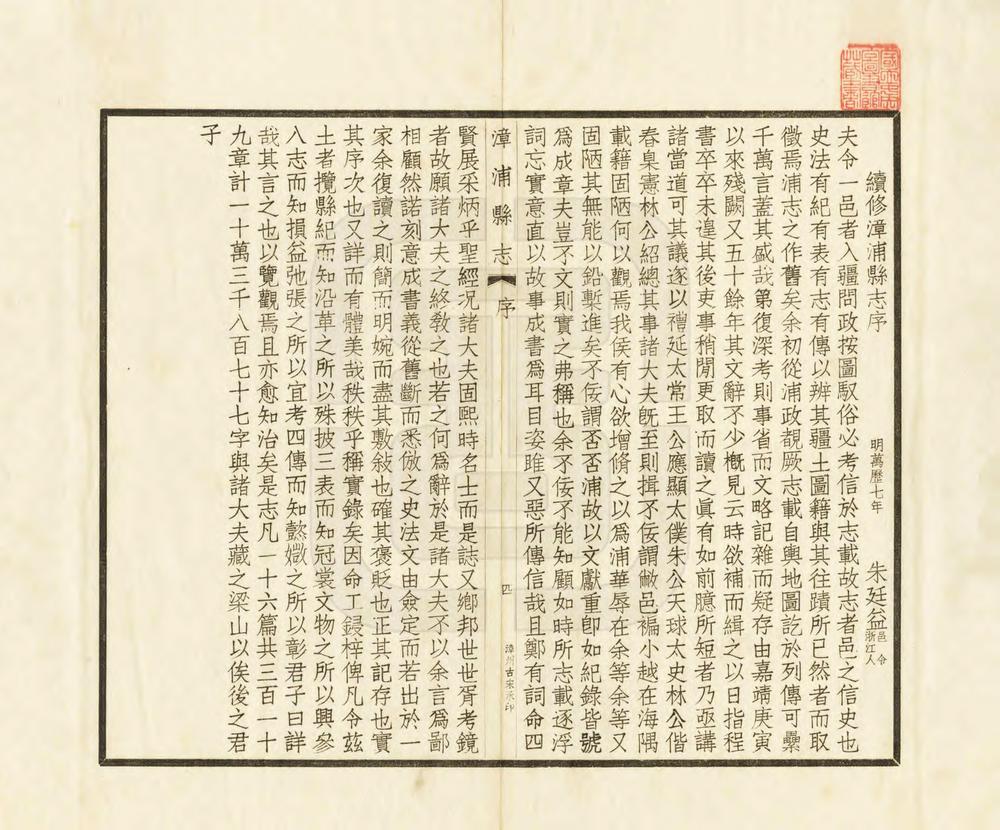 續修漳浦縣志序
明萬歷七年 朱廷益邑令浙江人
夫令一邑者入疆問政按圖馭俗必考信於志載故志者邑之信史也
史法有紀有表有志有傳以辨其疆土圖籍與其往蹟所已然者而取
徵焉浦志之作舊矣余初從浦政覩厥志載自輿地圖訖於列傳可纍
千萬言蓋其盛哉第復深考則事省而文略記雜而疑存由嘉靖庚寅
以來殘闕又五十餘年其文辭不少概見云時欲補而緝之以日指程
書卒卒未遑其後吏事稍閒更取而讀之眞有如前臆所短者乃亟講
諸當道可其議逐以禮延太常王公應顯太僕朱公天球太史林公偕
春臬憲林公紹總其事諸大夫旣至則揖不佞謂敝邑褊小越在海隅
載籍固陋何以觀焉我侯有心欲增脩之以爲浦華辱在余等余等又
固陋其無能以鉛槧進矣不佞謂否否浦故以文獻重卽如紀錄皆號
爲成章夫豈不文則實之弗稱也余不佞不能知顧如時所志載逐浮
詞忘實意直以故事成書爲耳目姿雎又惡所傳信哉且鄭有詞命四
漳浦縣志 序 四 漳州古宋承印
賢展采炳乎聖經况諸大夫固熙時名士而是誌又鄉邦世世胥考鏡
者故願諸大夫之終敎之也若之何爲辭於是諸大夫不以余言爲鄙
相顧然諾刻意成書義從舊斷而悉倣之史法文由僉定而若出於一
家余復讀之則簡而明婉而盡其敷敍也確其褒貶也正其記存也實
其序次也又詳而有體美哉秩秩乎稱實錄矣因命工鋟梓俾凡令茲
土者攬縣紀而知沿革之所以殊披三表而知冠裳文物之所以興參
八志而知損益弛張之所以宜考四傳而知懿媺之所以彰君子曰詳
哉其言之也以覽觀焉且亦愈知治矣是志凡一十六篇共三百一十
九章計一十萬三千八百七十七字與諸大夫藏之梁山以俟後之君
子